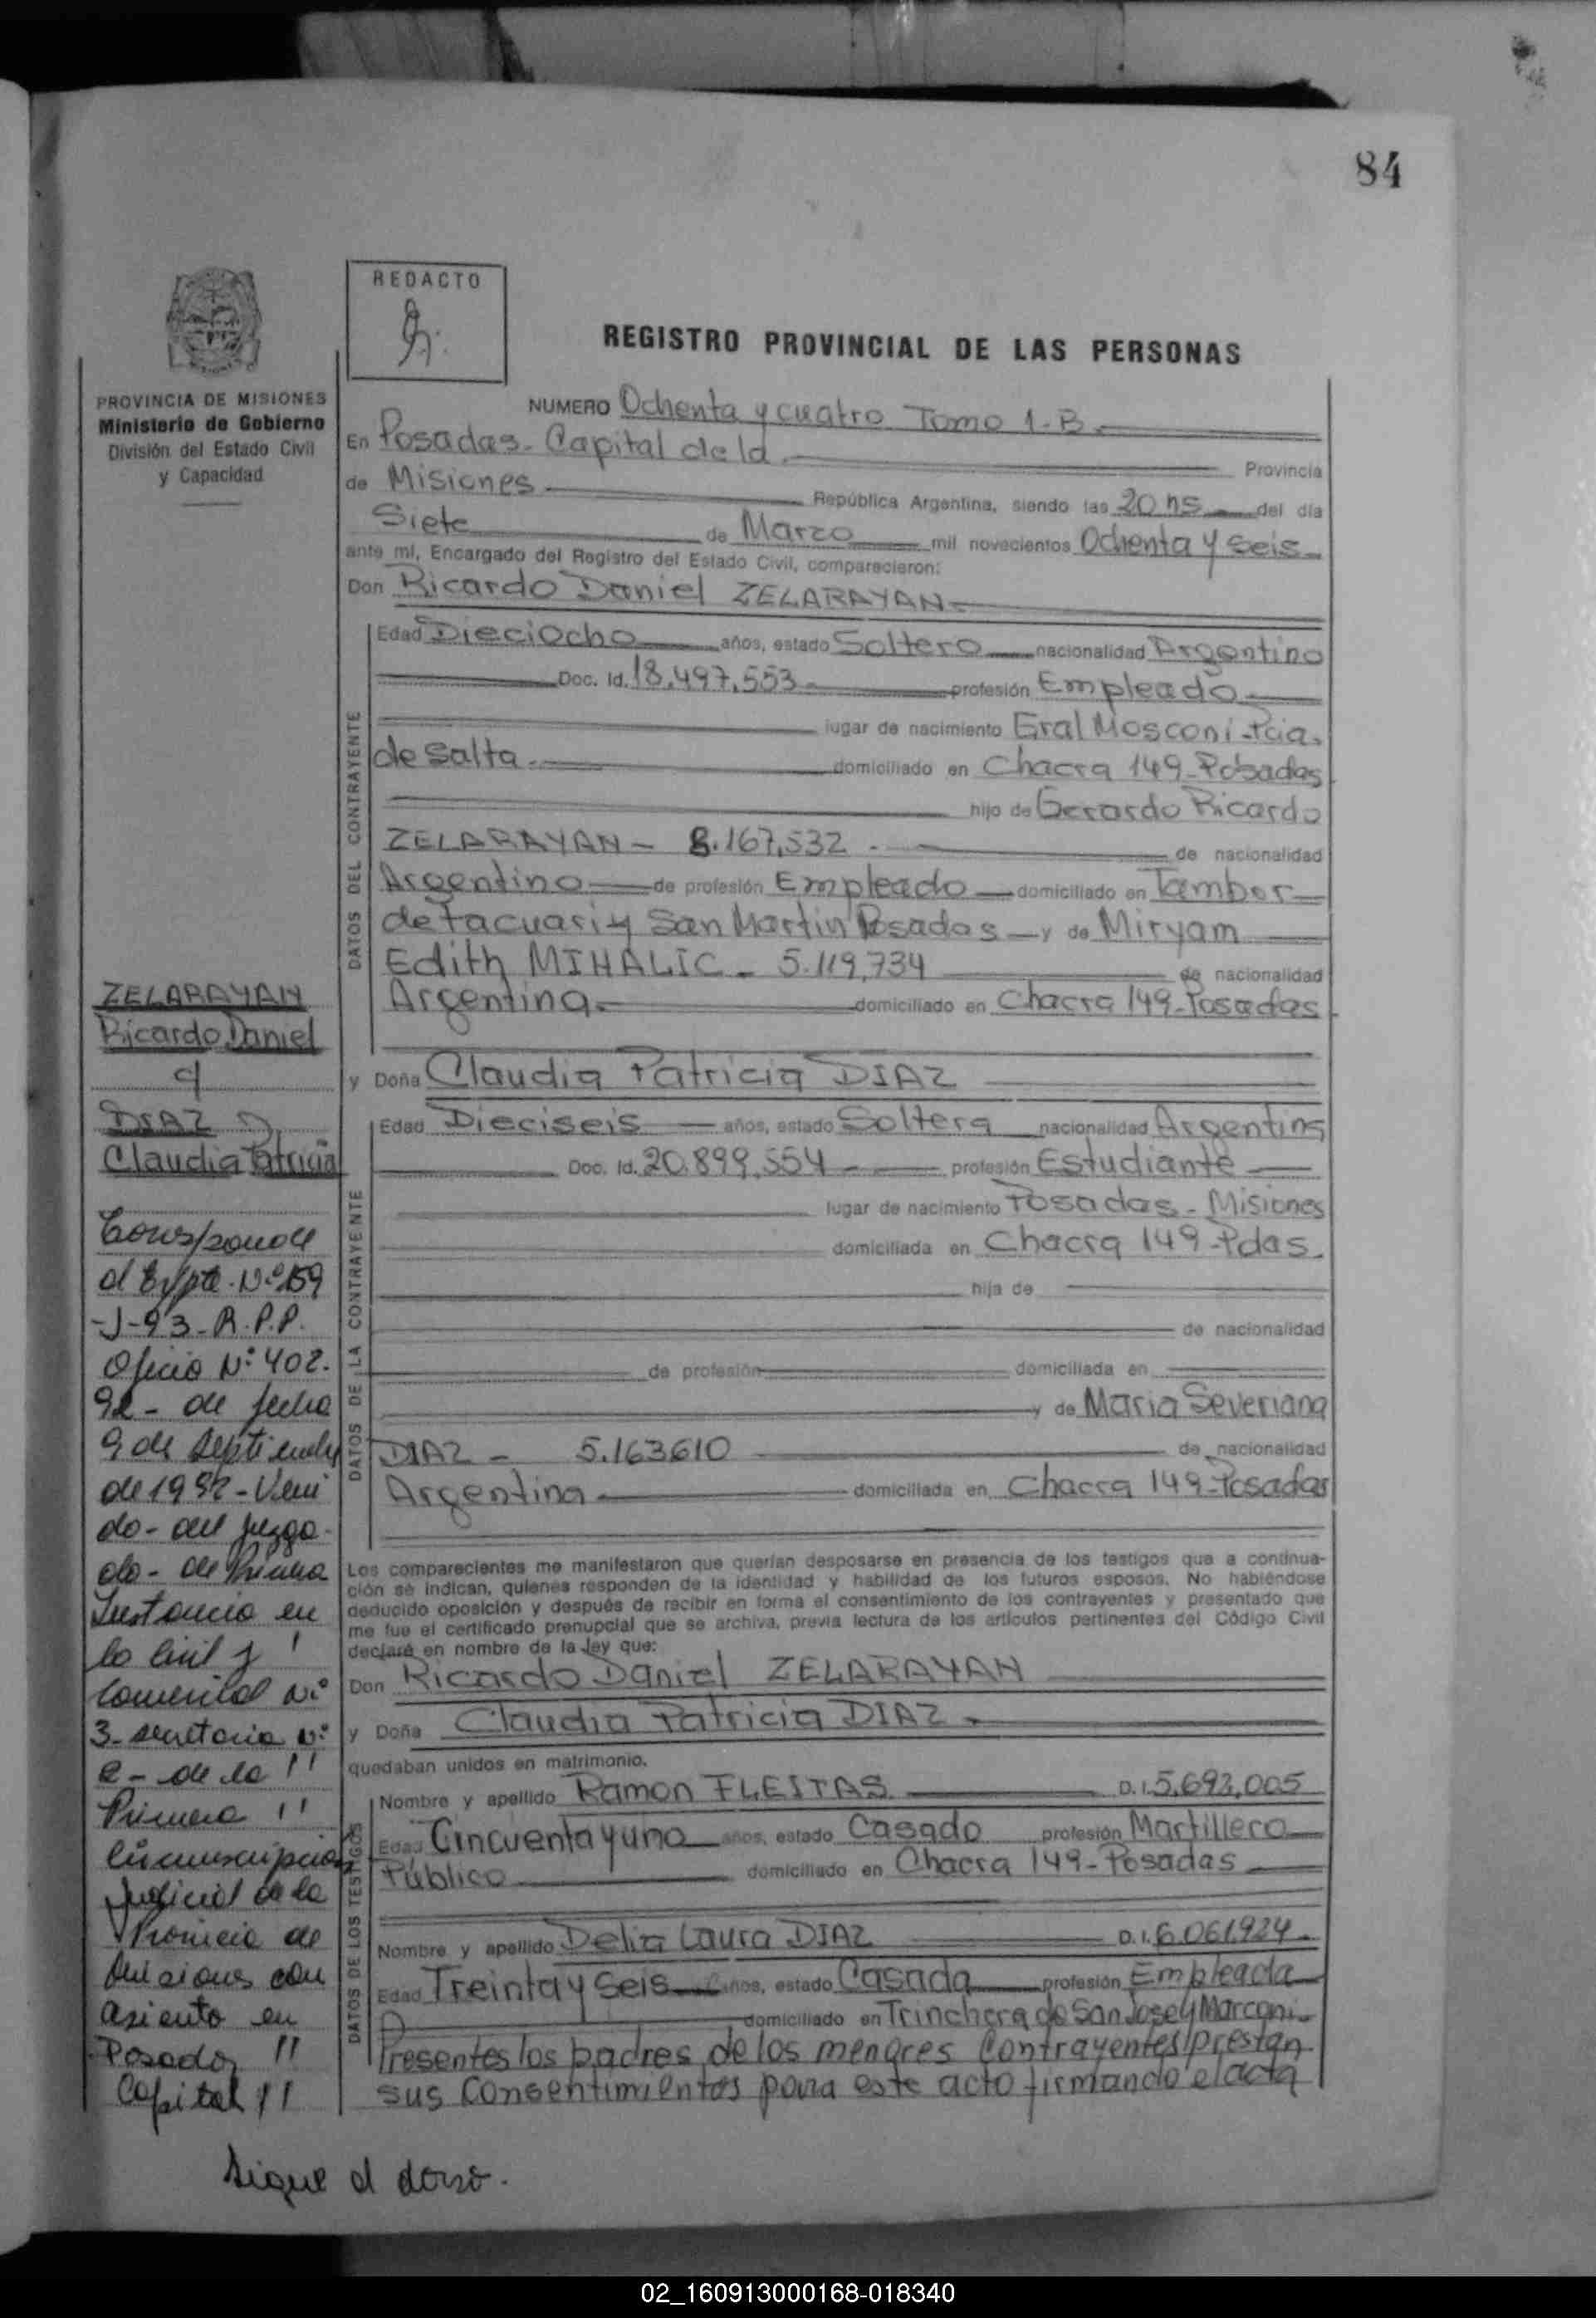 84
REDACTO
REGISTRO PROVINCIAL DE LAS PERSONAS
PROVINCIA DE MISIONES
Ministerio de Gobierno
División del Estado Civil
y Capacidad
NUMERO Ochenta y cuatro Tomo 1-B
En Posadas - Capital de la Provincia
de Misiones República Argentina, siendo las 20 hs del día
Siete de Marzo mil novecientos Ochenta y Seis
ante mí, Encargado del Registro del Estado Civil, comparecieron:
Don Ricardo Daniel ZELARAYAN
DATOS DEL CONTRAYENTE
Edad Dieciocho años, estado Soltero nacionalidad Argentino
Doc. Id. 18.497.553 profesión Empleado
lugar de nacimiento Gral Mosconi - Pcia.
de Salta domiciliado en Chacra 149 - Posadas
hijo de Gerardo Ricardo
ZELARAYAN - 8.167.532 de nacionalidad
Argentino de profesión Empleado domiciliado en Tambor
de Tacuari y San Martin Posadas y de Miryam
Edith MIHALIC - 5.119.734 de nacionalidad
Argentina domiciliado en Chacra 149 - Posadas
y Doña Claudia Patricia DIAZ
DATOS DE LA CONTRAYENTE
Edad Dieciseis años, estado Soltera nacionalidad Argentina
Doc. Id. 20.899.554 profesión Estudiante
lugar de nacimiento Posadas - Misiones
domiciliada en Chacra 149 - Pdas.
hija de
de nacionalidad
de profesión domiciliada en
y de Maria Severiana
DIAZ - 5.163610 de nacionalidad
Argentina domiciliada en Chacra 149 - Posadas
Los comparecientes me manifestaron que querían desposarse en presencia de los testigos que a continua-
ción se indican, quienes responden de la identidad y habilidad de los futuros esposos. No habiéndose
deducido oposición y después de recibir en forma el consentimiento de los contrayentes y presentado que
me fue el certificado prenupcial que se archiva, previa lectura de los artículos pertinentes del Código Civil
declaré en nombre de la ley que:
Don Ricardo Daniel ZELARAYAN
y Doña Claudia Patricia DIAZ
quedaban unidos en matrimonio.
DATOS DE LOS TESTIGOS
Nombre y apellido Ramon FLEITAS D.I. 5.692.005
Edad Cincuenta y uno años, estado Casado profesión Martillero
Público domiciliado en Chacra 149 - Posadas
Nombre y apellido Delia Laura DIAZ D.I. 6.061.924
Edad Treinta y Seis años, estado Casada profesión Empleada
domiciliado en Trinchera de San Jose y Marconi
Presentes los padres de los menores contrayentes prestan
sus consentimientos para este acto firmando el acta
ZELARAYAN
Ricardo Daniel
c/
DIAZ
Claudia Patricia
Corresponde
al Expte. Nº 159
-J-93- R.P.P.
Oficio Nº 402.
92 - de fecha
9 de septiembre
de 1992 - Veni
do - del juzga-
do - de Primera
Instancia en
lo Civil y
Comercial Nº
3 - secretaria Nº
2 - de la
Primera
Circunscripción
Judicial de la
Provincia de
Misiones con
asiento en
Posadas
Capital
Sigue al dorso.
02_160913000168-018340